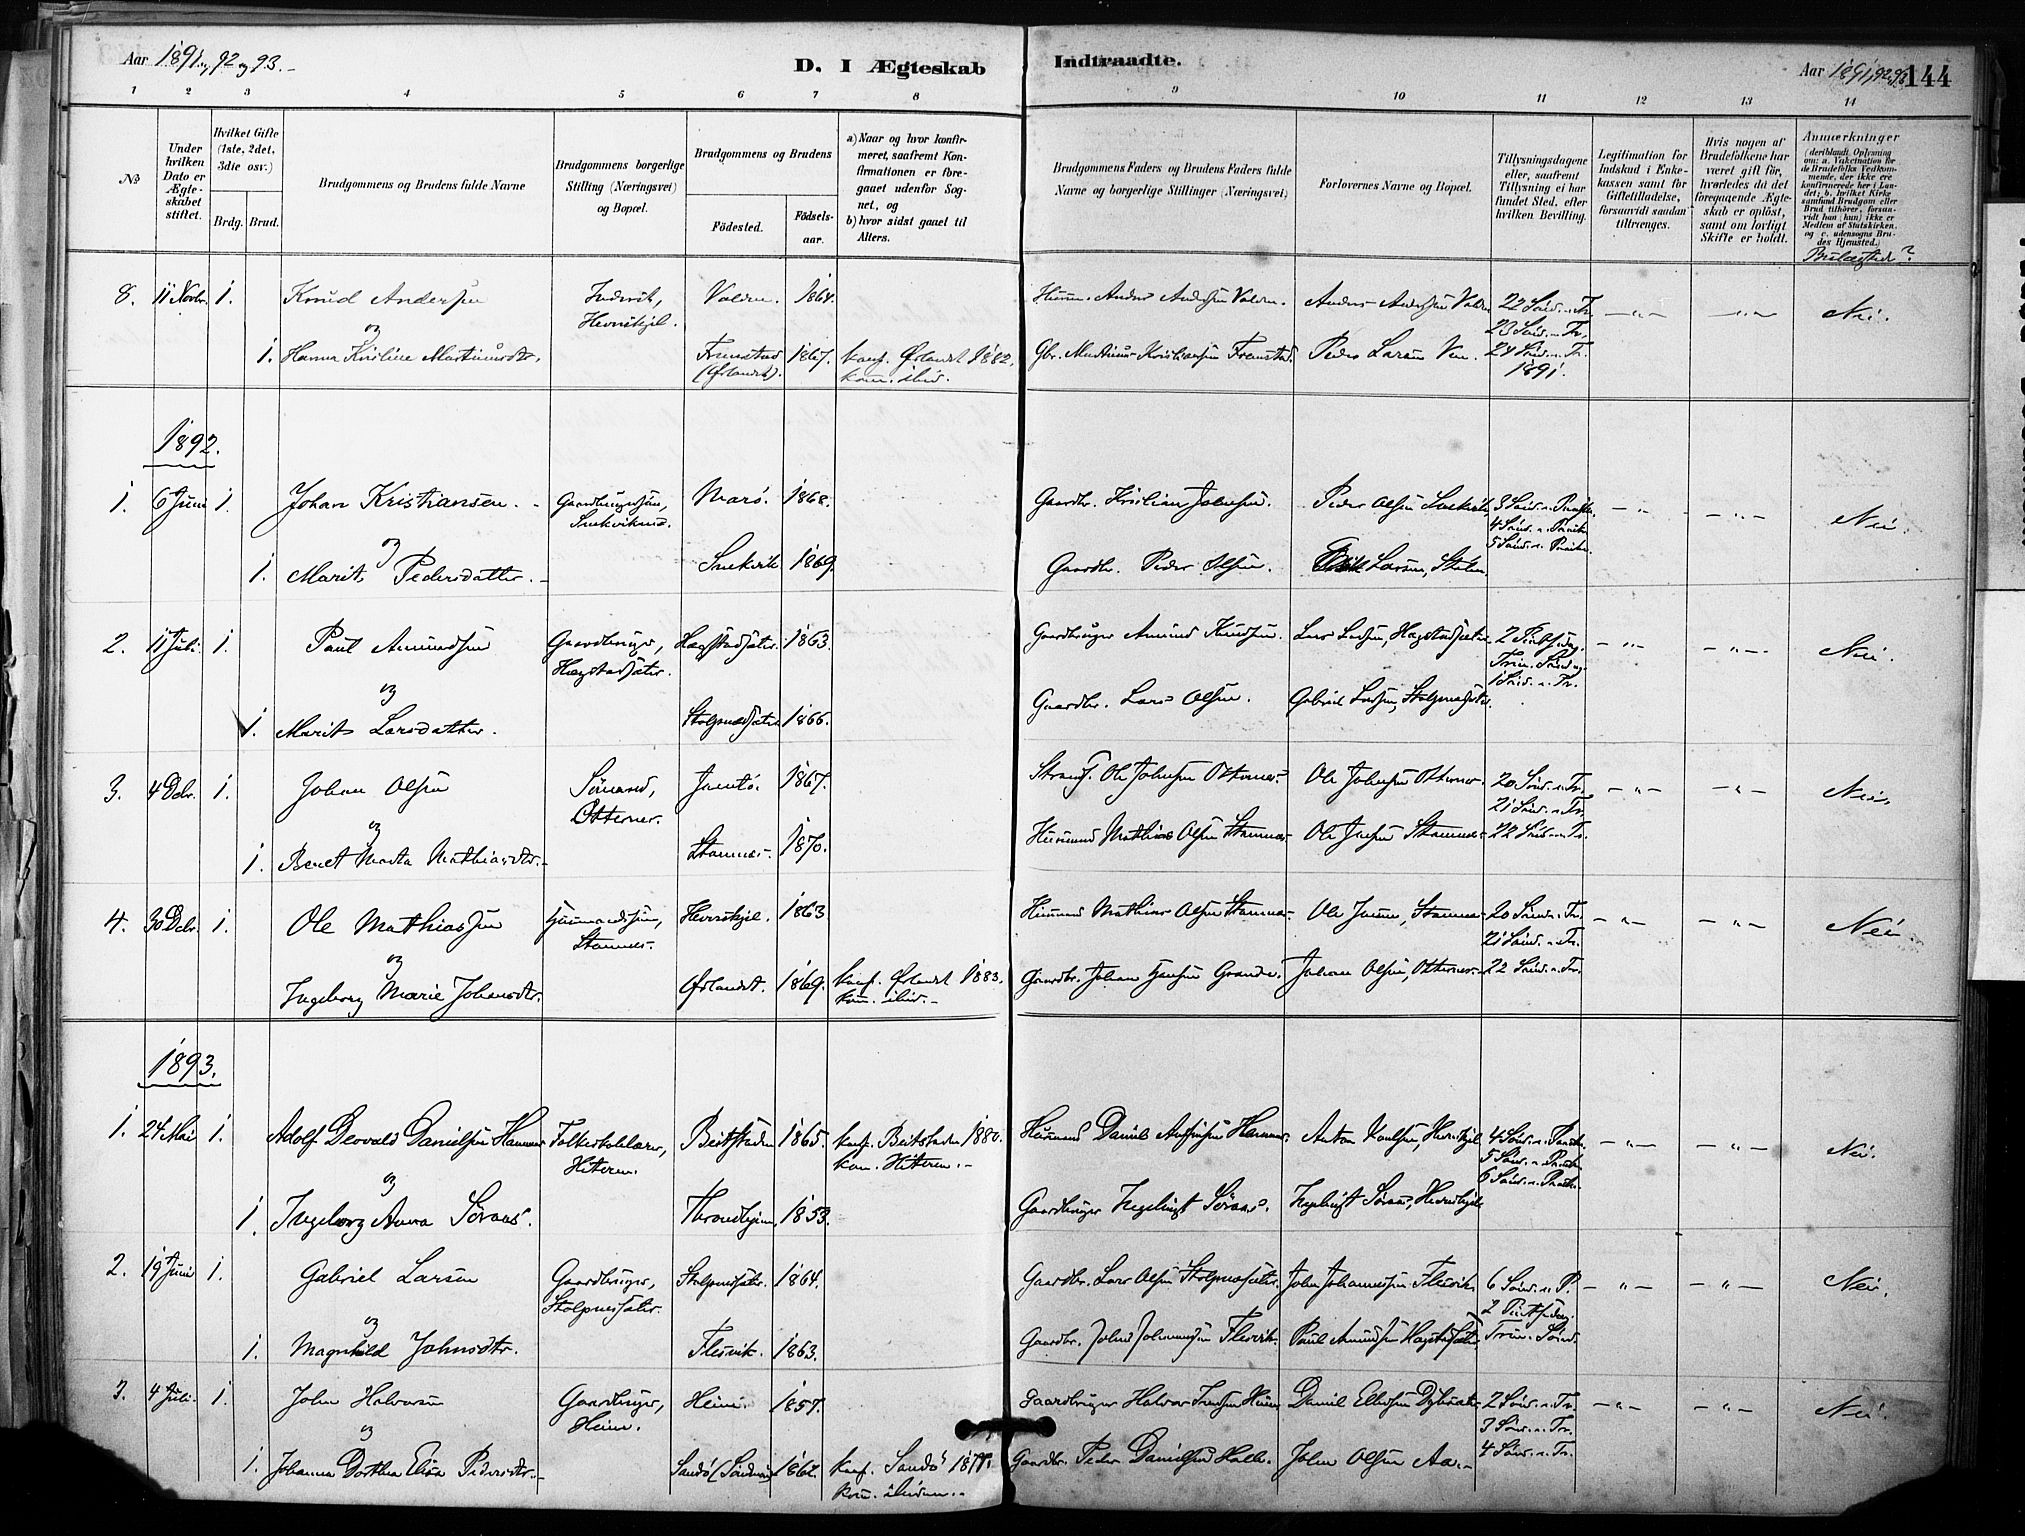 Aar 1891, 92 og 93.
D. I Ægteskab Indtraadte.
Aar 1891, 92, 93 144
1 2 3 4 5 6 7 8 9 10 11 12 13 14
No
Under hvilken Dato er Ægteskabet stiftet.
Hvilket Gifte (1ste, 2det, 3die osv.)
Brdg. Brud.
Brudgommens og Brudens fulde Navne
Brudgommens borgerlige Stilling (Næringsvei) og Bopæl.
Brudgommens og Brudens
Fødested.
Fødselsaar.
a) Naar og hvor konfirmeret, saafremt Konfirmationen er foregaaet udenfor Sognet, og
b) hvor sidst gaaet til Alters.
Brudgommens Faders og Brudens Faders fulde Navne og borgerlige Stillinger (Næringsvei)
Forlovernes Navne og Bopæl.
Tillysningsdagene eller, saafremt Tillysning ei har fundet Sted, efter hvilken Bevilling.
Legitimation for Indskud i Enkekassen samt for Giftetilladelse, forsaavidt saadan tiltrænges.
Hvis nogen af Brudefolkene har været gift før, hvorledes da det foregaaende Ægteskab er opløst, samt om lovligt Skifte er holdt.
Anmærkninger
(deriblandt Oplysning om: a. Vakcination for de Brudefolks Vedkommende, der ikke ere konfirmerede her i Landet; b. hvilket Kirkesamfund Brudgom eller Brud tilhører, forsaavidt han (hun) ikke er Medlem af Statskirken, og c. udensogns Brudes Hjemsted.)
8. 11 Novbr. 1. Knud Andersen Valen. 1864. Husm. Anders Andersen Valen. Anders Andersen Valen 22 Sønd. e. Tr. Nei.
og Hevnskjel. 23 Sønd. e. Tr.
1. Hanna Kristine Martinusdtr. 1867. konf. Ørlandet 1882. Gbr. Martinus Kristiansen Peder Larsen 24 Sønd. e. Tr.
(Ørlandet). kom. ibid. 1891.
1892.
1. 6 Juni 1. Johan Kristiansen. Marø. 1868. Gaardbr. Kristian Johnsen. Peder Olsen 3 Sønd. e. Paaske Nei.
og 4 Sønd. e. Paaske
5 Sønd. e. Paaske.
1. Marit Pedersdatter. 1869. Gaardbr. Peder Olsen. Larsen,
2. 11 Juli. 1. Paul Amundsen Gaardbruger, Hagstadsæter. 1863. Gaardbruger Amund Knudsen. Lars Larsen, Hagstadsæter. 2 Pintsedag. Nei.
og Hagstadsæter. Trin. Sønd. og
1 Sønd. e. Tr.
1. Marit Larsdatter. Stolpnessæter 1866. Gaardbr. Lars Olsen. Gabriel Larsen, Stolpnessæter
3. 4 Dcbr. 1. Johan Olsen Sømand, Jamtø. 1867. Ole Johnsen Otternes. Ole Johnsen Otternes. 20 Sønd. e. Tr. Nei.
og Otternes. 21 Sønd. e. Tr.
1. Beret Marta Mathiasdtr. Stamnes. 1870. Husmand Mathias Olsen Stamnes. Ole Stamnes. 22 Sønd. e. Tr.
4. 30 Dcbr. 1. Ole Mathiassen Husmandssøn, Hevnskjel. 1863 Husmand Mathias Olsen Stamnes. Ole Stamnes. 20 Sønd. e. Tr. Nei.
og Stamnes. 21 Sønd. e. Tr.
Ingeborg Marie Johansdtr. Ørlandet. 1869. konf. Ørlandet 1883. Gaardbr. Johan Hansen Grande. Johan Olsen, Otternes. 22 Sønd. e. Tr.
kom. ibid.
1893.
1. 24 Mai 1. Adolf Deovald Danielsen Hammer Folkeskolelærer, Beitstaden 1865. konf. Beitstaden 1880. Husmand Daniel Hammer. Anton Paulsen, Hevnskjel 4 Sønd. e. Paaske Nei.
og Hiteren. kom. Hiteren. 5 Sønd. e. Paaske
6 Sønd. e. Paaske
1. Ingeborg Anna Søraas. Throndhjem. 1853. Gaardbruger Ingebrigt Søraas. Ingebrigt Søraas, Hevnskjel
2. 19 Juni 1. Gabriel Larsen Gaardbruger, Stolpnessæter. 1864. Gaardbr. Lars Olsen Stolpnessæter. John Johannessen Flesvik. 6 Sønd. e. P. Nei.
og Stolpnessæter. 2 Pintsedag.
1. Magnhild Johnsdtr. Flesvik. 1863. Gaardbr. John Johannessen Flesvik. Paul Amundsen Hagstadsæter. Trin. Sønd.
3. 4 Juli. 1. John Halvorsen Gaardbruger, Heim. 1857. Gaardbruger Halvor Heim Daniel 2 Sønd. e. Tr. Nei.
og Heim. 3 Sønd. e. Tr.
1. Johanna Dorthea Elisa Pedersdtr. Sandø 1862. konf. Sandø 1877. Gaardbr. Peder Danielsen John Olsen Aa. 4 Sønd. e. Tr.